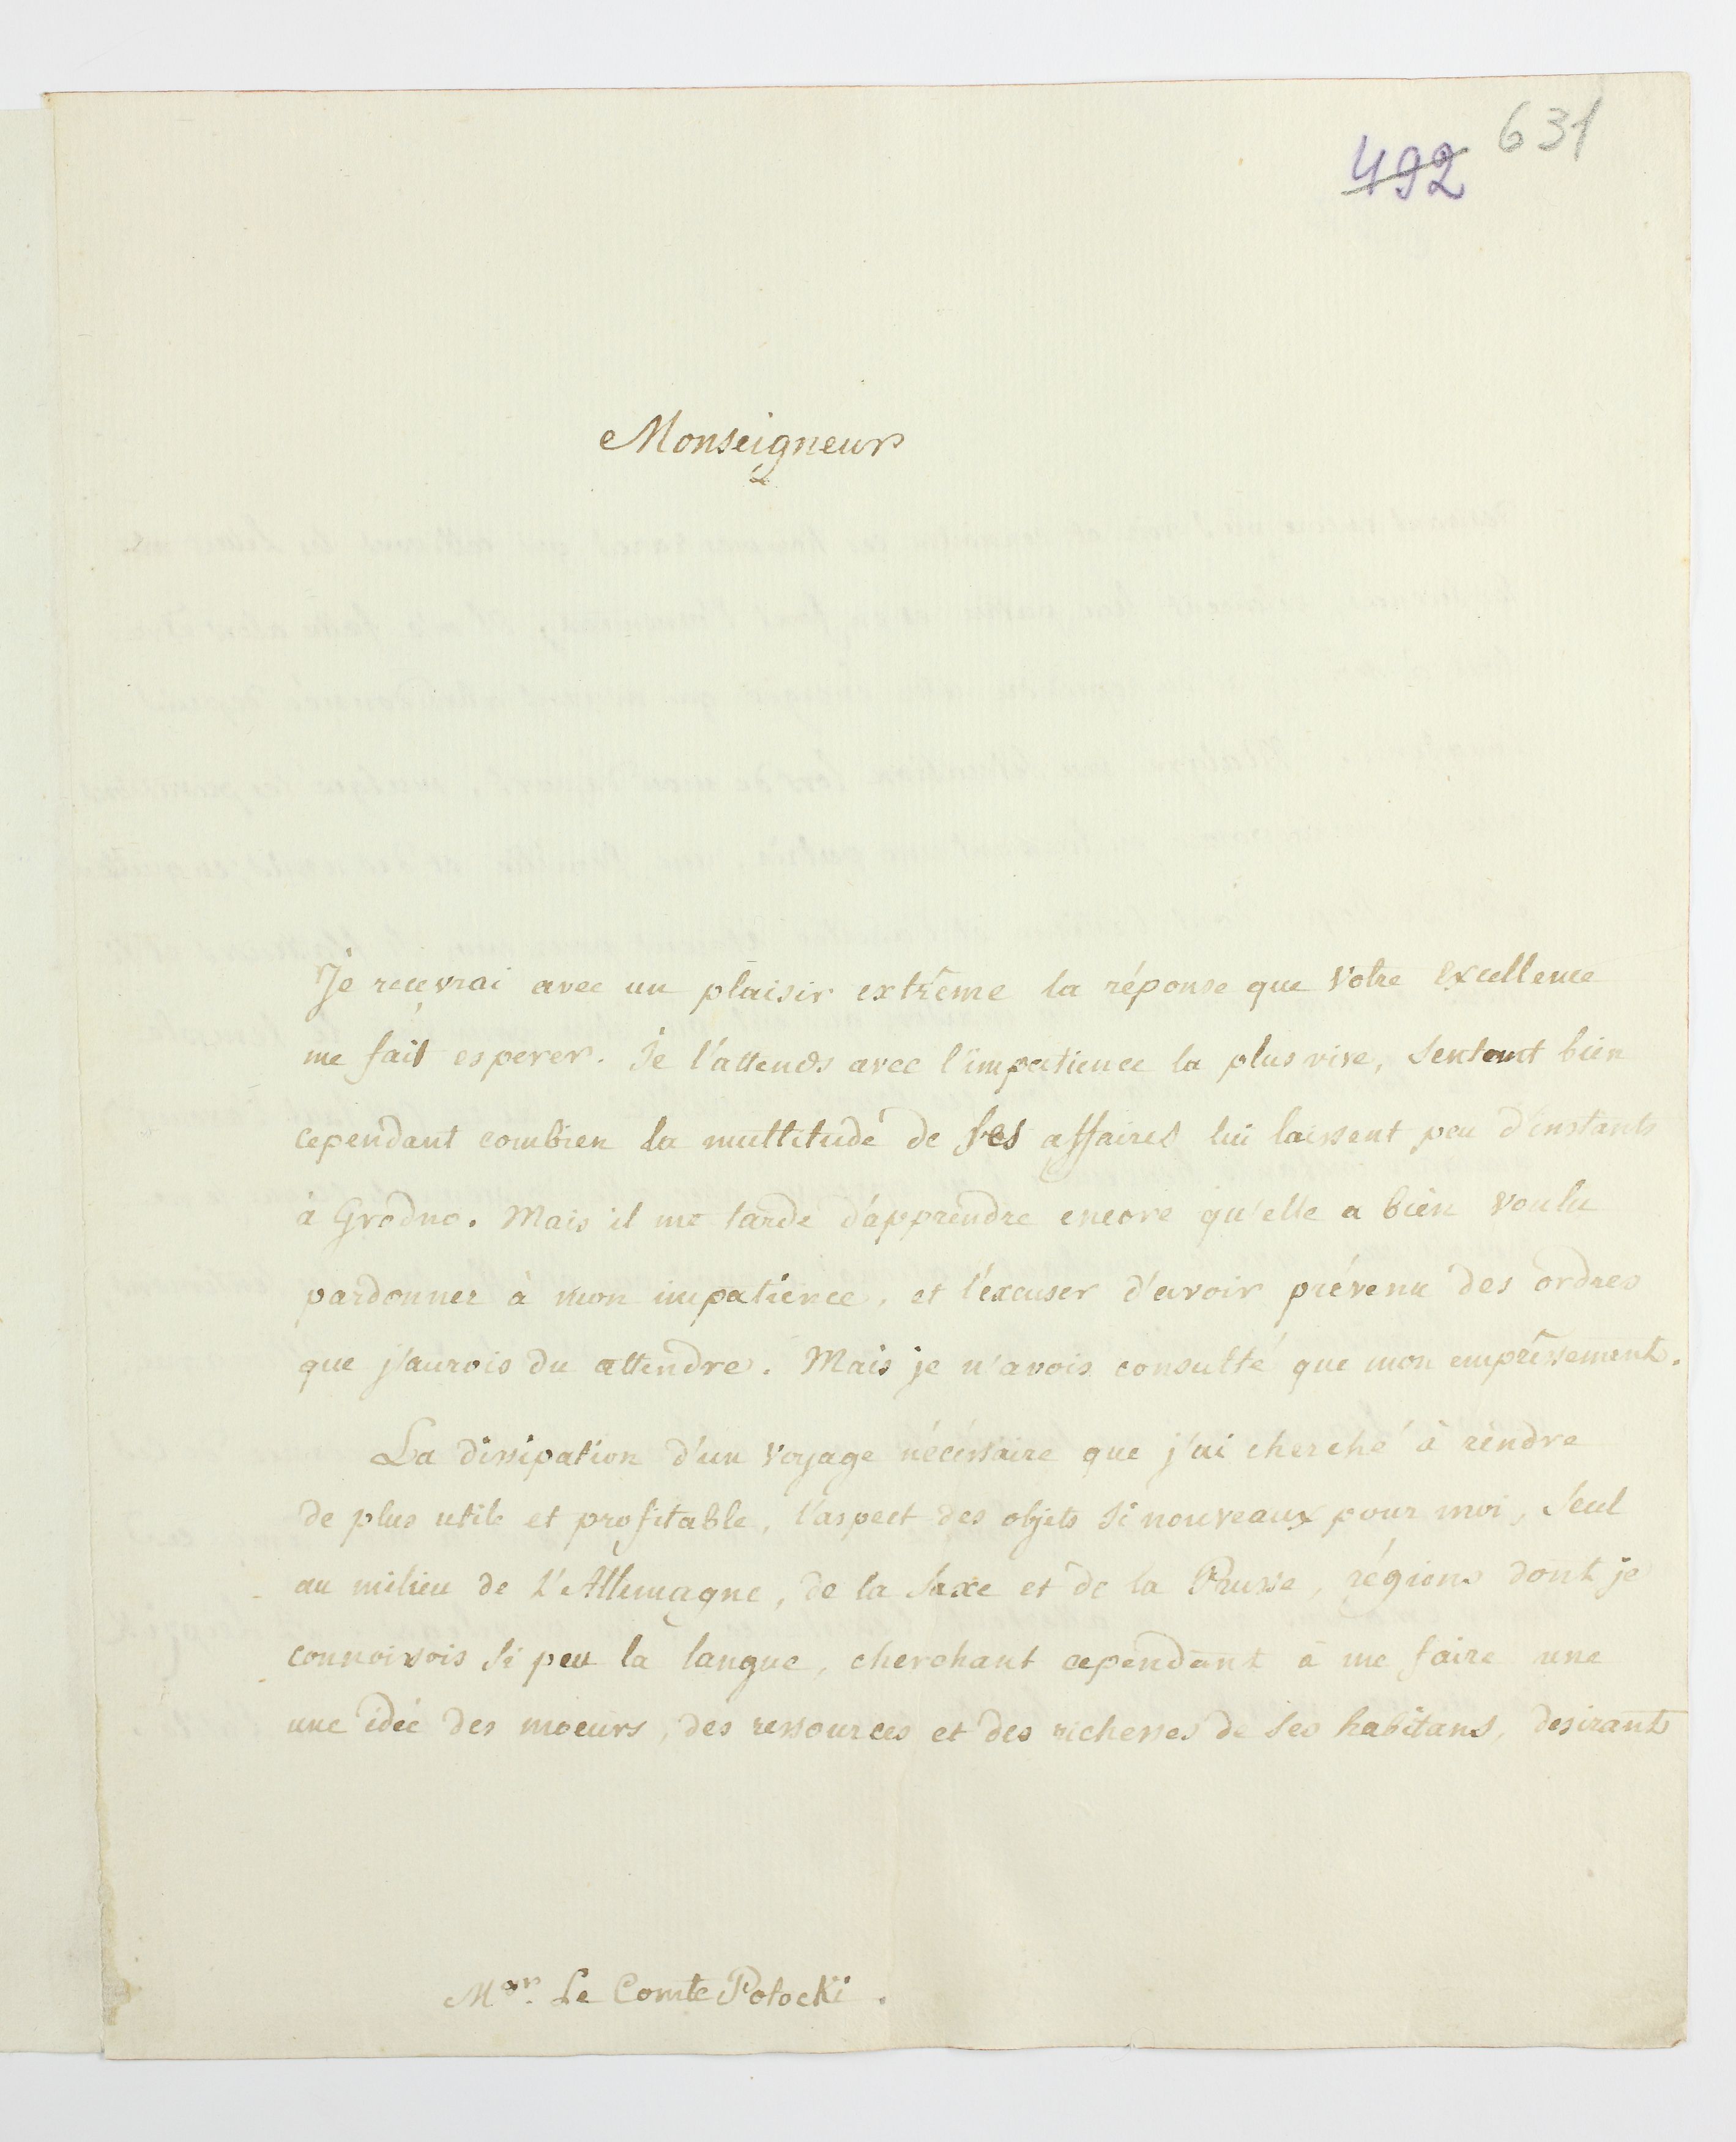 631
492
Monseigneur
Je recevrai avec un plaisir extrême la réponse que Votre Excellence
me fait esperer. Je l'attends avec l'impatience la plus vive, sentant bien
cependant combien la multitude de ses affaires lui laissent peu d'instants
à Grodno. Mais il me tarde d'apprendre encore qu'elle a bien voulu
pardonner à mon impatience, et l'excuser d'avoir prévenu des ordres
que j'aurois du attendre. Mais je n'avois consulté que mon empressement.
La dissipation d'un voyage nécessaire que j'ai cherché à rendre
de plus utile et profitable, l'aspect des objets si nouveaux pour moi, seul
au milieu de l'Allemagne, de la Saxe et de la Prusse, régions dont je
connoissois si peu la langue, cherchant cependant à me faire une
une idée des moeurs, des ressources et des richesses de ses habitans, desirant
Mgr. Le Comte Potocki.